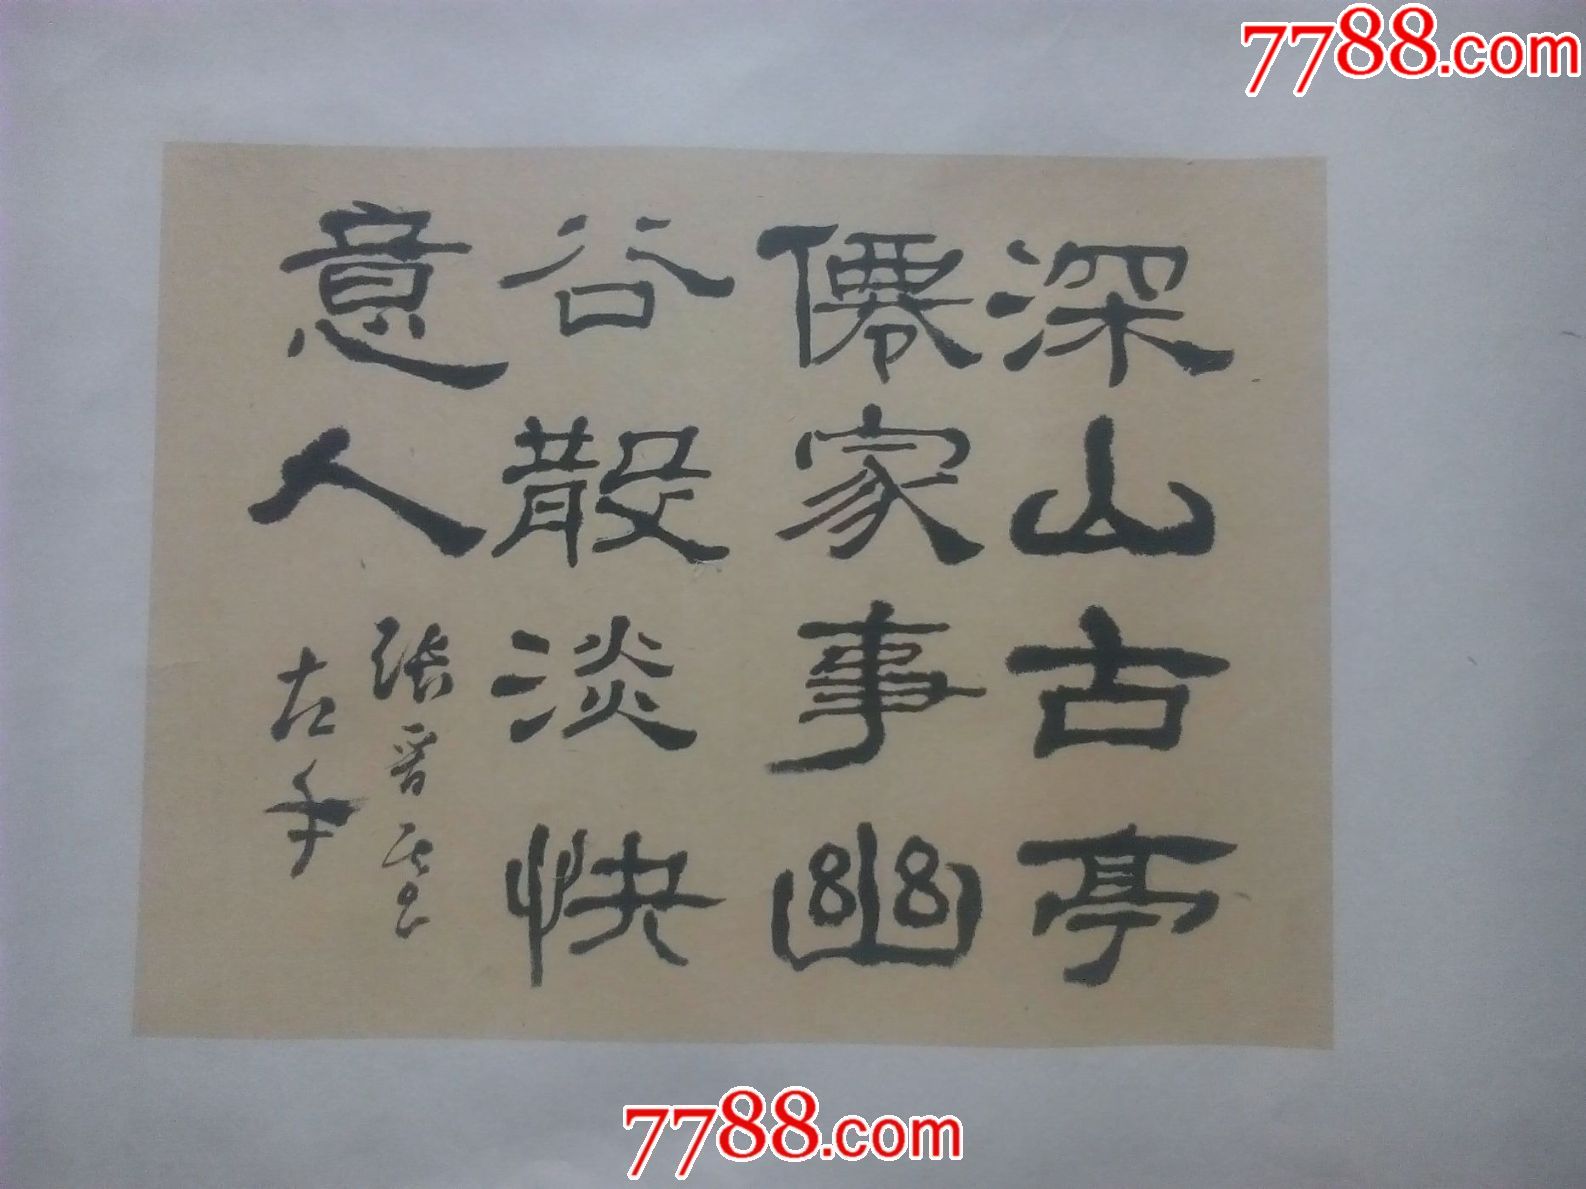 7788.com
深山古亭
僊家事幽
谷散淡快
意人
張晋
左手
7788.com